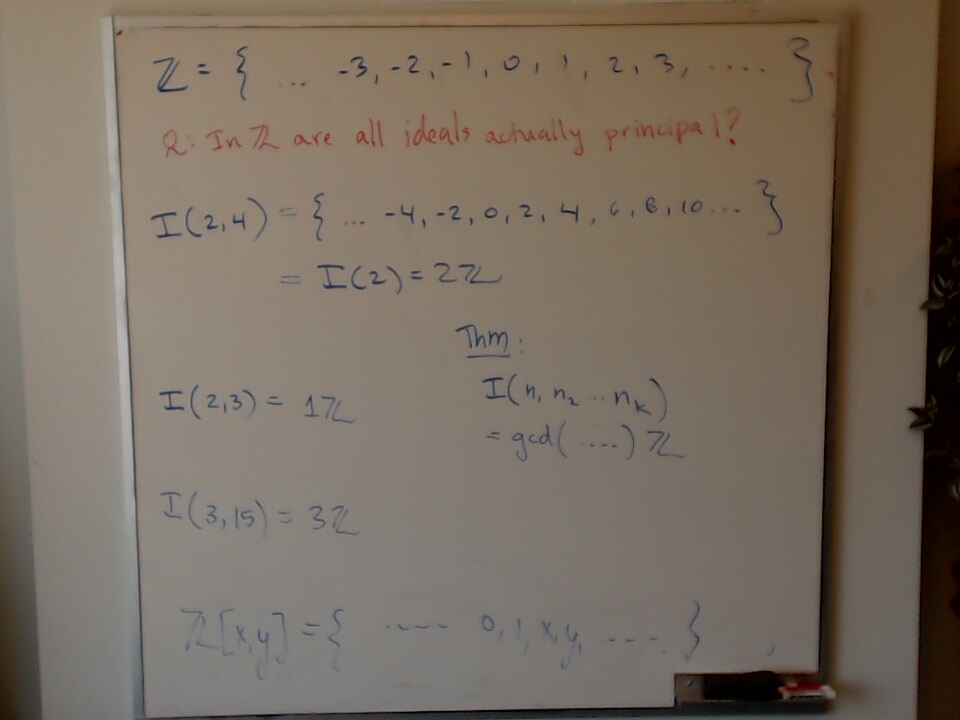 ℤ = { ... -3, -2, -1, 0, 1, 2, 3, ..... }
Q: In ℤ are all ideals actually principal?
I(2,4) = { ... -4, -2, 0, 2, 4, 6, 8, 10 ... }
= I(2) = 2ℤ
Thm:
I(n, n₂ ... nₖ)
= gcd( .... ) ℤ
I(2,3) = 1ℤ
I(3,15) = 3ℤ
ℤ[x,y] = { ..... 0, 1, x, y, ..... }